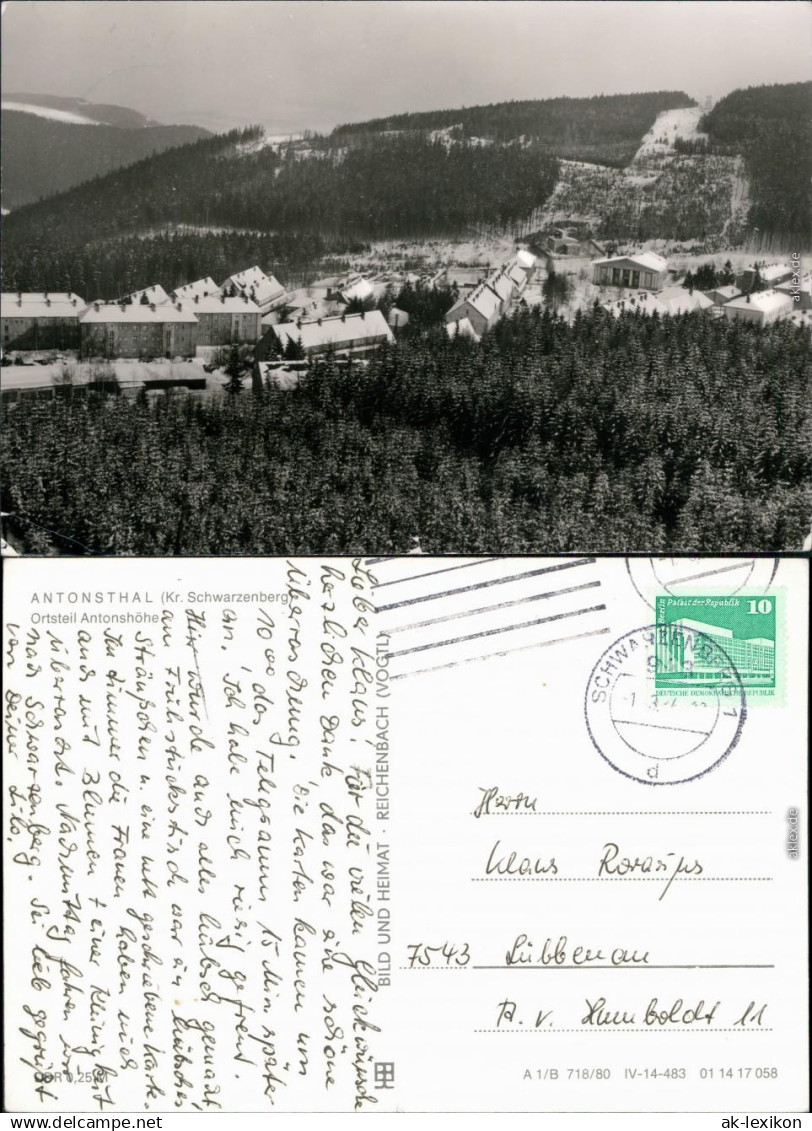 ANTONSTHAL (Kr. Schwarzenberg)
Ortsteil Antonshöhe
Lieber Klaus! Für die vielen Glückwünsche
herzlichen Dank das war eine schöne
Überraschung. Die Karten kamen um
10 00 das Telegramm 15 Min später
an. Ich habe mich riesig gefreut.
Hier wurde auch alles hübsch gemacht,
am Frühstückstisch war ein hübsches
Sträußchen u. eine nett geschriebene Karte.
Im Zimmer die Frauen haben mich
auch mit Blumen + einer Kleinigkeit
überrascht. Nachmittag fahren wir
nach Schwarzenberg. Sei lieb gegrüßt
von Deiner Lilo.
DDR 0,25 M
BILD UND HEIMAT · REICHENBACH (VOGTL)
Berlin
Palast der Republik
10
DEUTSCHE DEMOKRATISCHE REPUBLIK
SCHWARZENBERG 1
d
Herrn
Klaus
7543 Lübbenau
A. v. Humboldt 11
A 1/B 718/80 IV-14-483 01 14 17 058
aklex.de
aklex.de
ak-lexikon
ak-lexikon.de